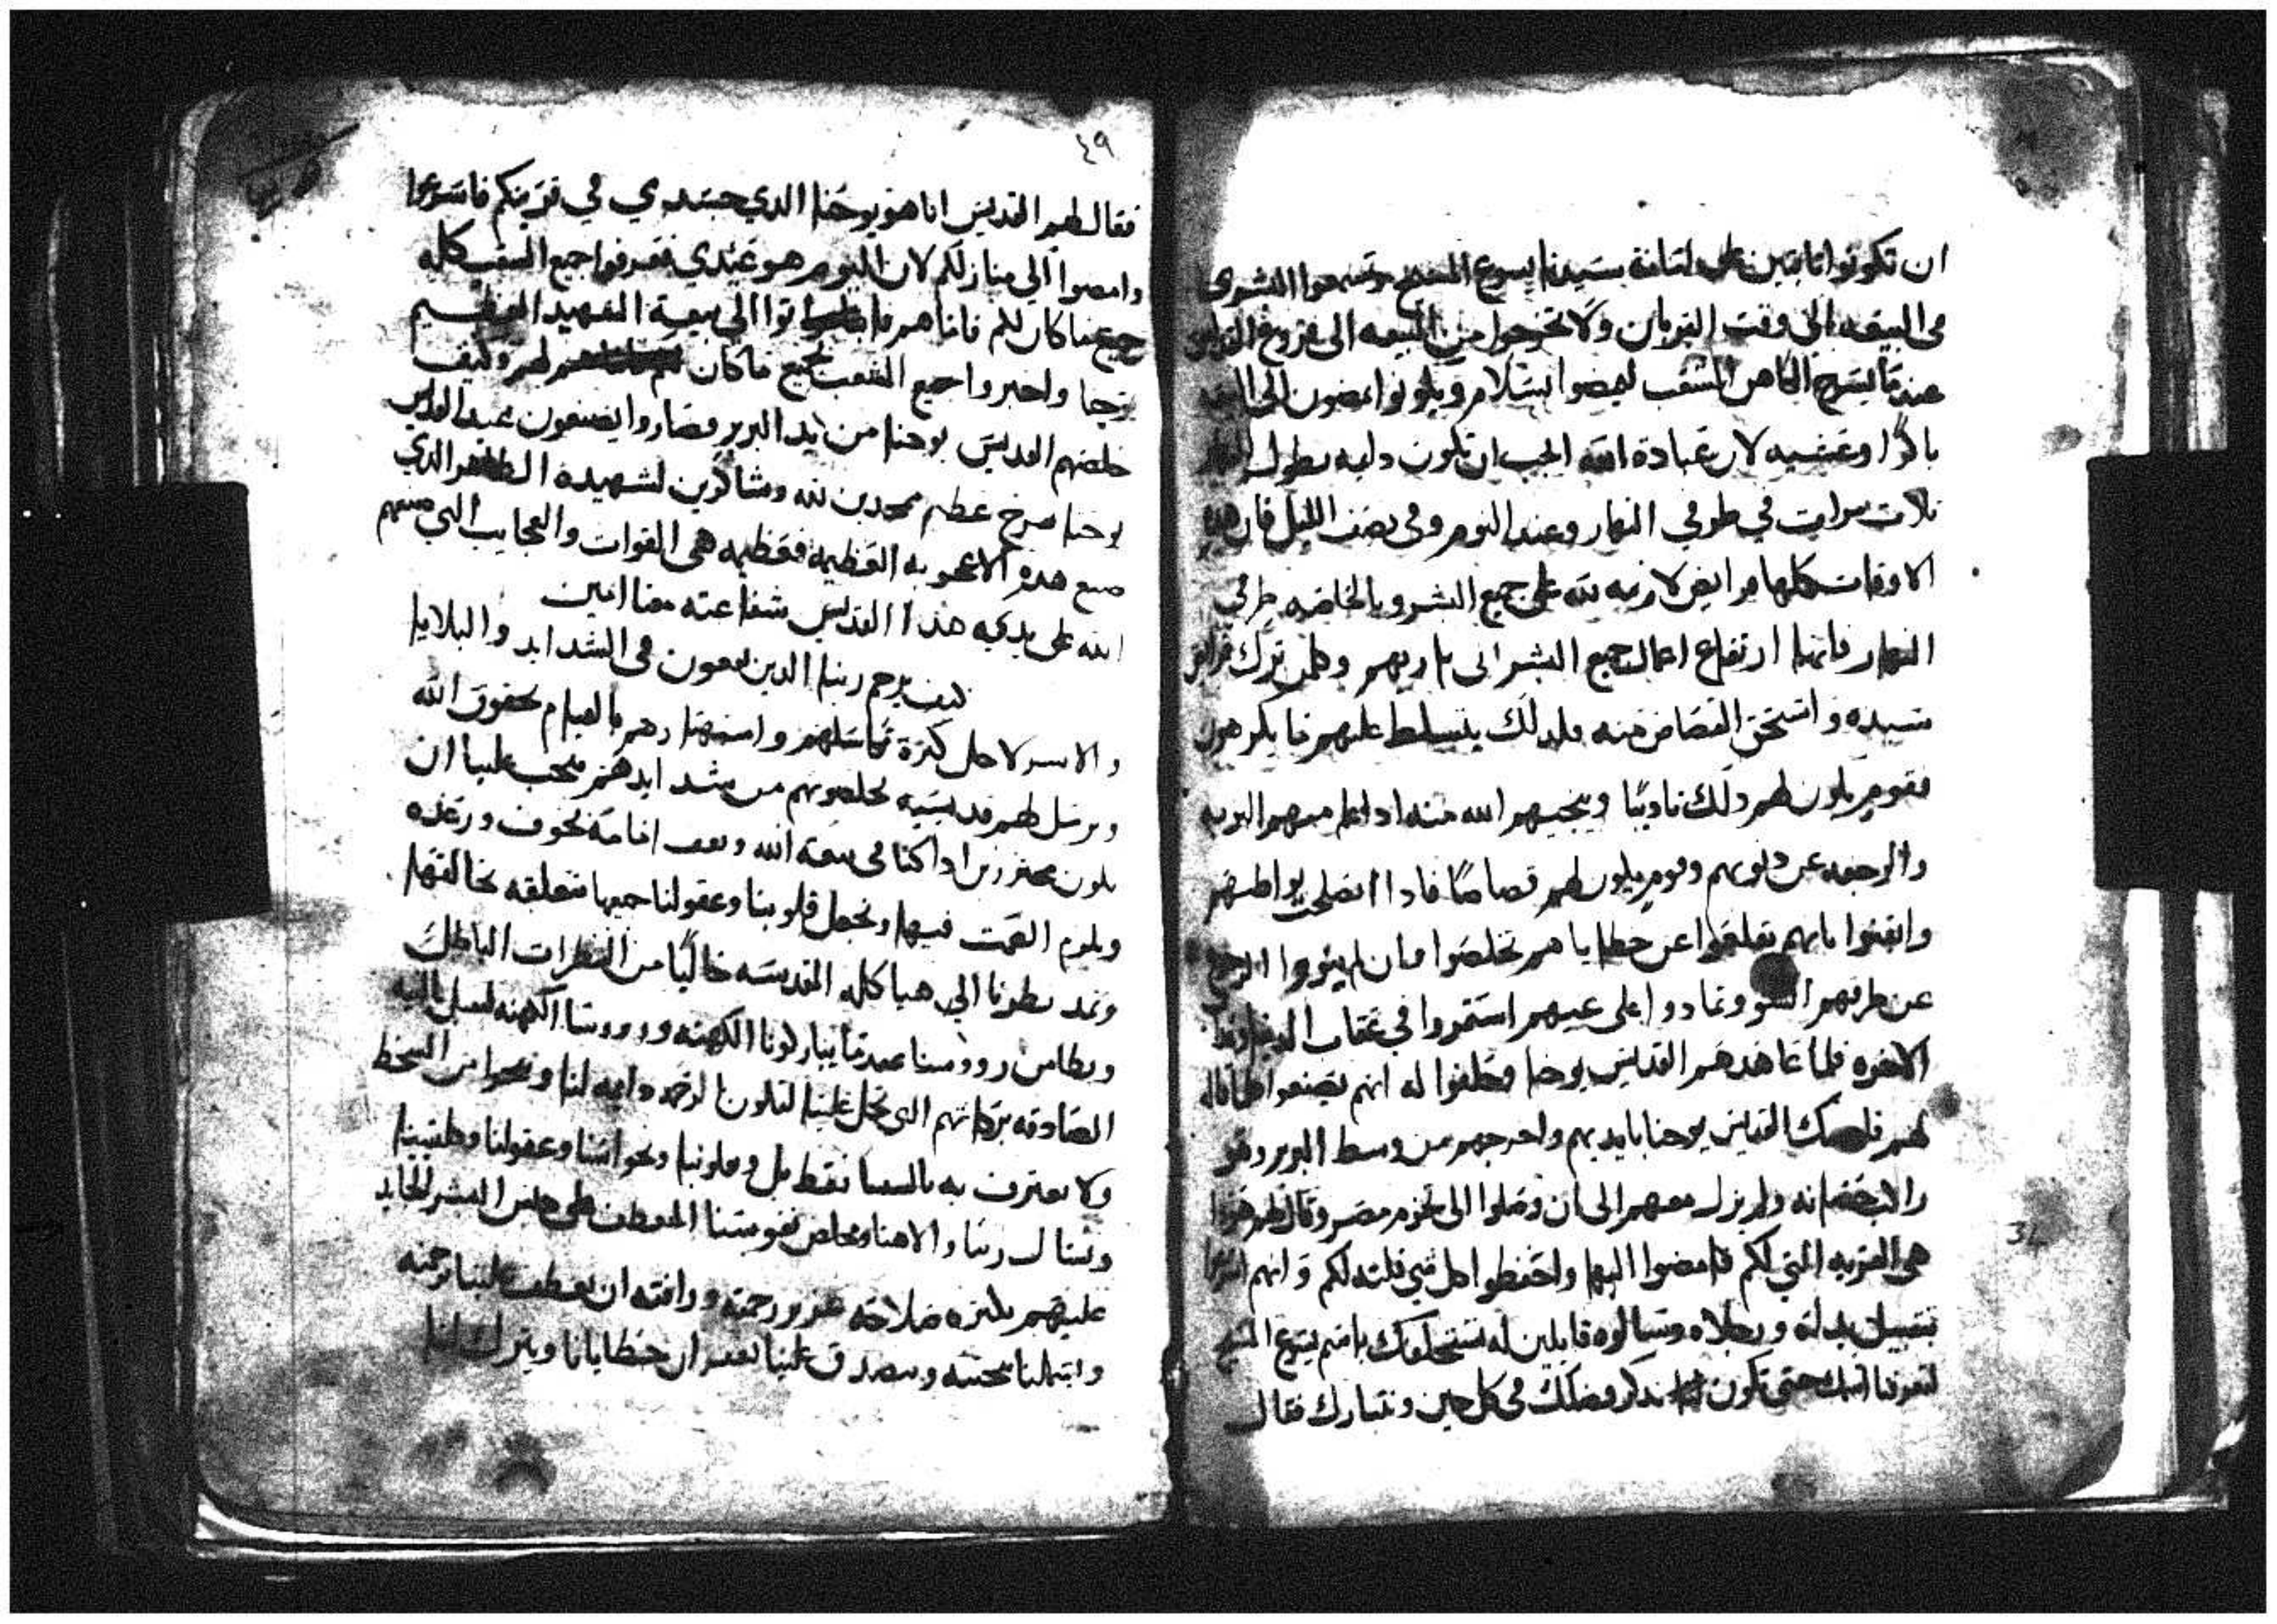 ان تكونوا تابتين على امانة سيدنا يسوع المسيح
في البيعه الى وقت القربان ولا تخرجوا من البيعه الى فروغ القداس
عندما يسرح الكاهن الشعب ليمضوا بسلام وتكونوا تمضون الى البيعه
باكرًا وعشيه لان عبادة الله الجب ان تكون دايه بطول النهار
تلات مرات في طرفي النهار وعند النوم وفي نصف الليل فان هده
الاوقات كلها فرايض لازمه لله على جميع البشر وبالخاصه طرفي
النهار فانها ارتفاع اعمال جميع البشر الى باريهم وكلمن ترك فرايض
سيده واستحق القصاص منه فلدلك يتسلط عليهم ما يكرهون
فقوم يكون لهم دلك تاديبًا وينجيهم الله منه ادا علم منهم التوبه
والرجوع عن دنوبهم وقوم يكون لهم قصاصًا فادا انصلحت بواطنهم
واتقنوا بانهم تعلقوا عن خطاياهم تخلصوا وان لم
عن طرقهم السو وتمادوا على عيهم استمروا في عقاب الدنيا
الاخره فلما عاهدهم القديس يوحنا وحلفوا له انهم يصنعوا كلما قاله
لهم فامسك القديس يوحنا بايديهم واخرجهم من وسط البربر وهو
راكب حصانه ولم يزل معهم الى ان وصلوا الى تخوم مصر وقال لهم هودا
هى القريه التي لكم فامضوا اليها واحتفظوا بكل شي قلته لكم وانهم
بتقبيل يديه ورجلاه وسالوه قايلين له نستحلفك باسم يسوع المسيح
لتعرفنا اسمك حتى نكون ندكر فضلك في كل حين ونتبارك فقال
٤٩
فقال لهم القديس انا هو يوحنا الدي جسدي في قريتكم فاسرعوا
وامضوا الى منازلكم لان اليوم هو عيدي فعرفوا جميع الشعب كله
جميع ما كان لكم فاما هم اتوا الى بيعة الشهيد العظيم
يوحنا واخبروا جميع الشعب بجميع ما كان لهم وكيف
خلصهم القديس يوحنا من يد البربر فصاروا يصنعون عيد القديس
يوحنا بفرح عظيم ممجدين لله وشاكرين لشهيده الطاهر الدي
صنع هده الاعجوبه العظيمه فعظيمه هى القوات والعجايب التي صنعهم
الله على يديه هذا القديس شفاعته معنا امين
كيف يرحم ربنا الدين يقعون في الشدايد والبلايا
والاسر لاجل كترة تكاسلهم واستهتارهم بالقيام بحقوق الله
ويرسل لهم قديسيه يخلصوهم من شدايدهم فيجب علينا ان
نكون محترزين ادا كنا في بيعة الله ونقف امامه بخوف ورعده
ونلزم الصمت فيها ونجعل قلوبنا وعقولنا جميعها متعلقه بخالقها
ونمد نظرنا الى هياكله المقدسه خاليًا من النظرات الباطله
ونطامن روسنا عندما يباركونا الكهنه وروسا الكهنه
الصادقه بركاتهم التى تحل علينا لتكون الرحمه دايمه لنا وننجوا من السخط
ولا نعترف به بالسنتنا فقط بل وبقلوبنا وبحواسنا وعقولنا وطلبتنا
ونسال ربنا والاهنا ومخلص نفوسنا المتعطف على جنس البشر الحايد
عليهم بكتره صلاحه عزير رحمته ورافته ان يعطف علينا برحمته
ويشملنا بمحبته ويتصدق علينا بغفران خطايانا ويترك لنا